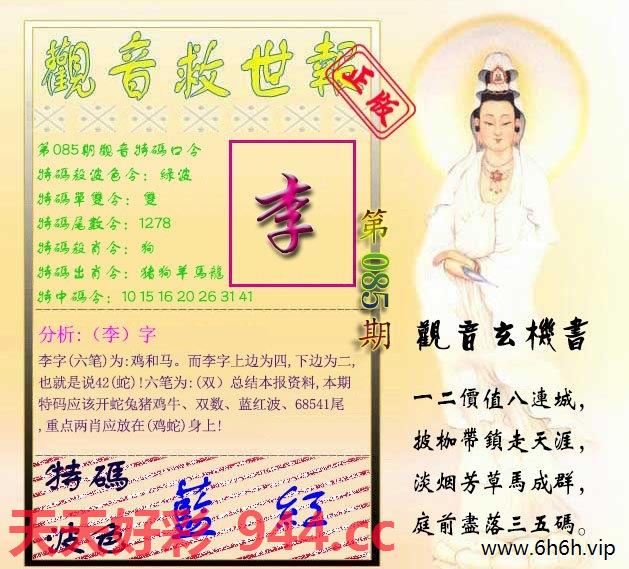 觀音救世報
正版
第085期觀音特碼口令
特碼殺波色令：綠波
特碼單雙令：雙
特碼尾數令：1278
特碼殺肖令：狗
特碼出肖令：豬狗羊馬龍
特中碼令：10 15 16 20 26 31 41
李
第085期
分析:（李）字
李字(六笔)为:鸡和马。而李字上边为四,下边为二,
也就是说42(蛇)!六笔为:(双）总结本报资料,本期
特码应该开蛇兔猪鸡牛、双数、蓝红波、68541尾
,重点两肖应放在(鸡蛇)身上!
特碼
波色
藍 紅
天天好彩 944.cc
觀音玄機書
一二價值八連城，
披枷帶鎖走天涯，
淡烟芳草馬成群，
庭前盡落三五碼。
www.6h6h.vip